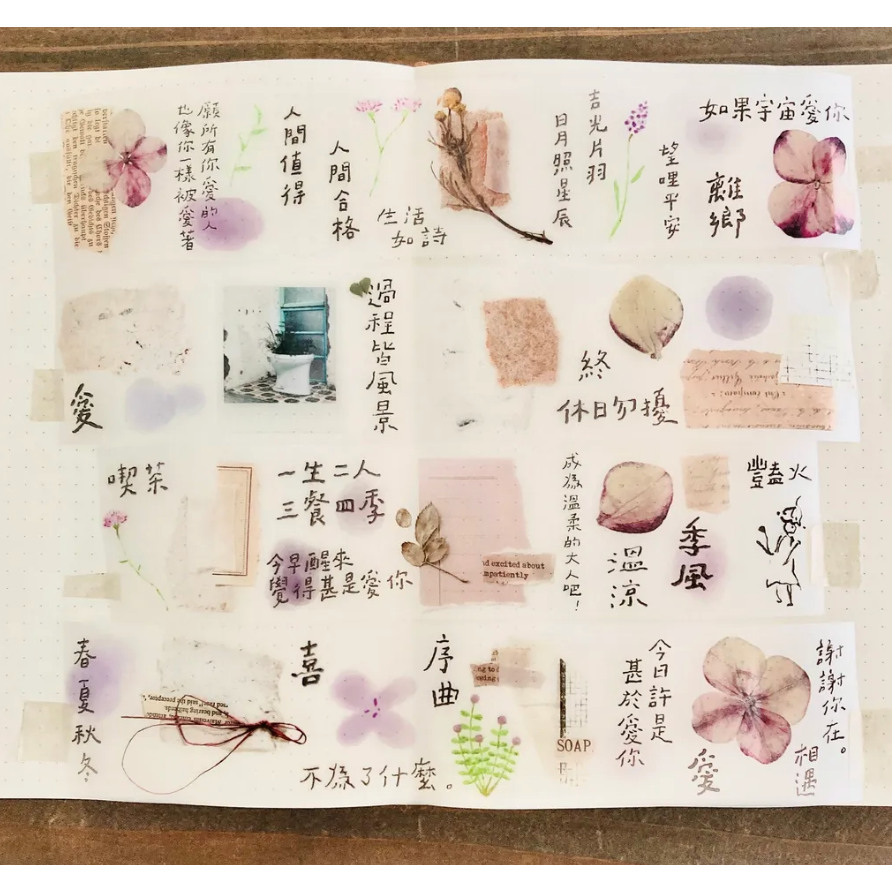 願所有你愛的人
也像你一樣被愛著
人間值得
人間合格
生活
如詩
吉光片羽
日月照星辰
望哩平安
如果宇宙愛你
離鄉
愛
過程皆風景
終
休日勿擾
喫茶
一生二人
三餐四季
今早醒來
覺得甚是愛你
nd excited about
mpatiently
成為溫柔的大人吧！
溫涼
季風
豔火
春夏秋冬
喜
不為了什麼。
序曲
SOAP
今日許是
甚於愛你
愛
謝謝你在。
相遇